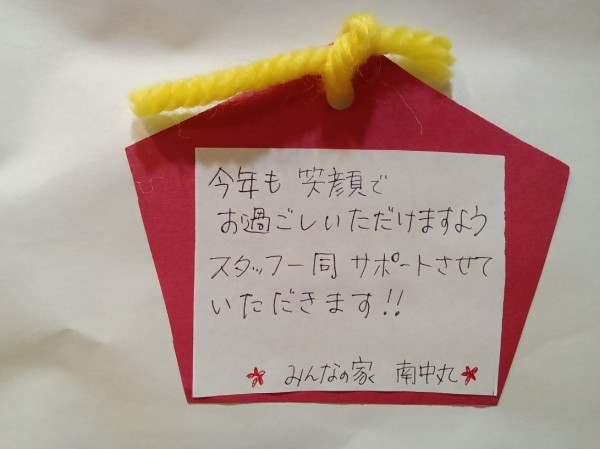 今年も 笑顔で
お過ごしいただけますよう
スタッフ一同 サポートさせて
いただきます!!
みんなの家 南中丸